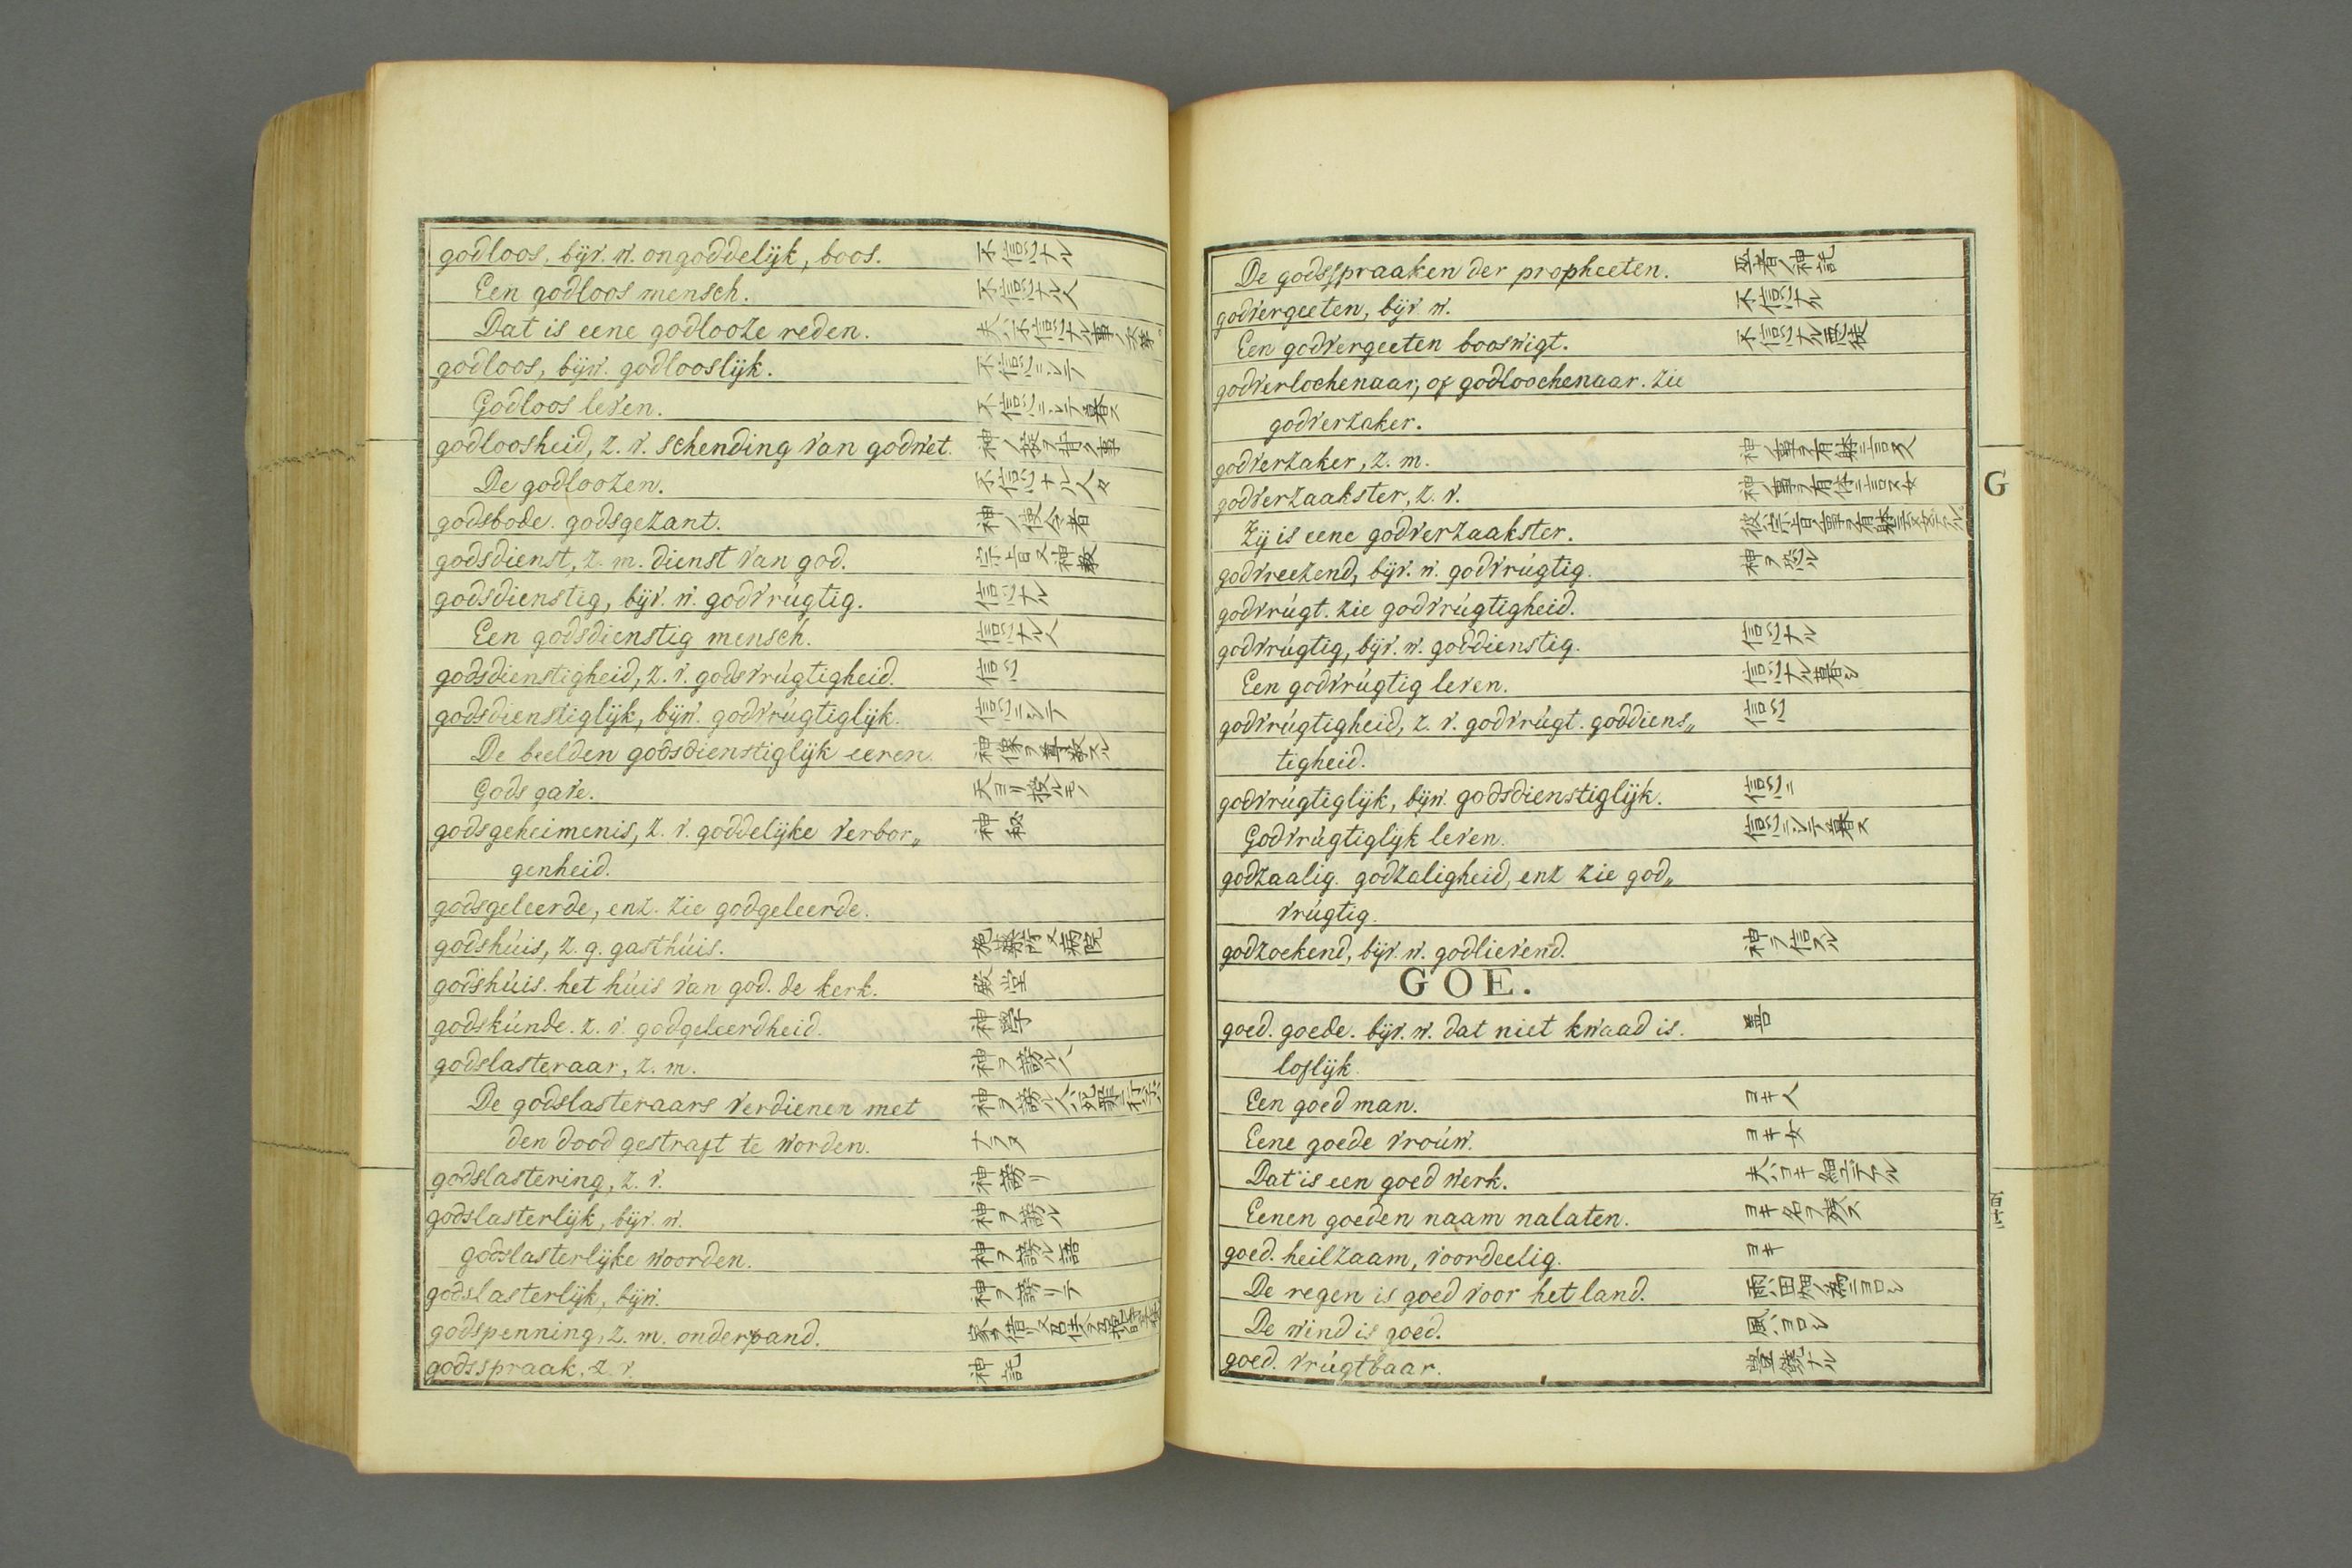 godloos, bijv. w. ongoddelijk, boos. 不信心ナル
Een godloos mensch. 不信心ナル人
Dat is eene godlooze reden. 夫ハ不信心ナル事ノ
godloos, bijw. godlooslijk. 不信心ニシテ
Godloos leven. 不信心ニシテ暮ス
godloosheid, z. v. schending van godwet. 神ノ掟ヲ背ク事
De godloozen. 不信心ナル人々
godsbode. godsgezant. 神ノ使令者
godsdienst, z. m. dienst van god. 宗旨又神教
godsdienstig, bijv. w. godvrúgtig. 信心ナル
Een godsdienstig mensch. 信心ナル人
godsdienstigheid, z. v. godsvrúgtigheid. 信心
godsdienstiglijk, bijw. godvrúgtiglijk. 信心ニシテ
De beelden godsdienstiglijk eeren. 神像ヲ尊敬スル
Gods gave. 天ヨリ授ルモノ
godsgeheimenis, z. v. goddelijke verbor„ 神秘
genheid.
godsgeleerde, enz. zie godgeleerde.
godshúis, z. g. gasthúis. 又病院
godshúis. het húis van god. de kerk. 殿堂
godskúnde. z. v. godgeleerdheid. 神學
godslasteraar, z. m. 神ヲ謗ル人
De godslasteraars verdienen met 神ヲ謗ル人ハ死罪ニ行
den dood gestraft te worden.
godslastering, z. v. 神謗リ
godslasterlijk, bijv. w. 神ヲ謗ル
godslasterlijke woorden. 神ヲ謗ル語
godslasterlijk, bijw. 神ヲ謗リテ
godspenning, z. m. onderpand.
godsspraak, z. v. 神託
De godsspraaken der propheeten. 巫者ノ神託
godvergeeten, bijv. w. 不信心ナル
Een godvergeeten booswigt. 不信心ナル悪徒
godverlochenaar, of godloochenaar. zie
godverzaker.
godverzaker, z. m. 神ノ事ヲ有躰ニ言ヌ人
godverzaakster, z. v. 神ノ事ヲ有体ニ言ヌ女
Zij is eene godverzaakster. 彼ハ宗旨ノ事ヲ有躰ニ
godvreezend, bijv. w. godvrúgtig. 神ヲ恐ル
godvrúgt. zie godvrúgtigheid.
godvrúgtig, bijv. w. goddienstig. 信心ナル
Een godvrúgtig leven. 信心ナル暮シ
godvrúgtigheid, z. v. godvrúgt. goddiens„ 信心
tigheid.
godvrúgtiglijk, bijw. godsdienstiglijk. 信心ニ
Godvrúgtiglijk leven. 信心ニシテ暮ス
godzaalig. godzaligheid, enz zie god„
vrúgtig.
godzoekend, bijv. w. godlievend. 神ヲ信スル
GOE.
goed. goede. bijv. w. dat niet kwaad is. 善
loflijk.
Een goed man. ヨキ人
Eene goede vroúw. ヨキ女
Dat is een goed werk. 夫ハヨキ細工デアル
Eenen goeden naam nalaten. ヨキ名ヲ残ス
goed. heilzaam, voordeelig. ヨキ
De regen is goed voor het land. 雨ハ田畑ノ為ニヨロシ
De wind is goed. 風ハヨロシ
goed. vrúgtbaar. 豊饒ナル
G